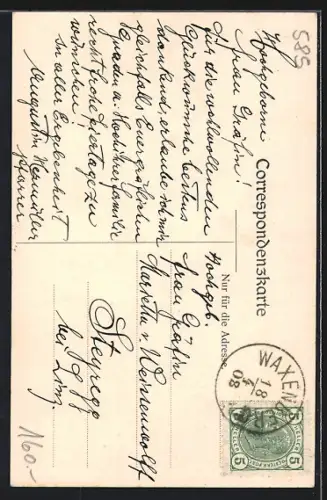 585
Correspondenzkarte
Nur für die Adresse
Hochgeborne
Frau Gräfin!
Für die wohlwollenden
Glückwünsche bestens
dankend, erlaube ich mir
gleichfalls Euer gräflichen
Gnaden u. Hochihrer Familie
recht frohe Feiertage zu
wünschen!
In aller Ergebenheit
Augustin
Pfarrer
Hochgb.
Frau Gräfin
Marietta v. Weissenwolff
Steyregg
bei Linz.
WAXENBERG
18 4
08
5 5
160.-